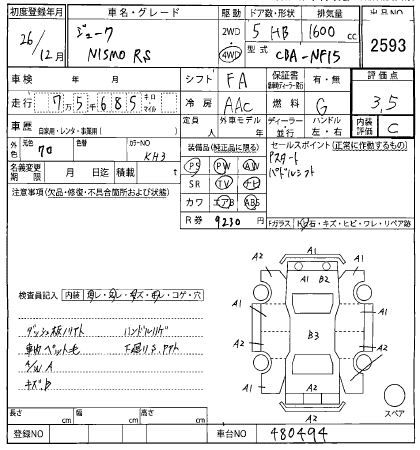 初度登録年月 車名・グレード 駆動 ドア数・形状 排気量 出品NO
26/12月 ジューク NISMO RS 2WD 4WD 5 HB 1600 cc 2593
型式 CBA-NF15
車検 年 月 シフト FA 保証書 有・無 評価点
走行 7万5685 キロ・マイル 冷房 AAC 燃料 G 3.5
車歴 自家用・レンタ・事業用( ) 定員 人 外車モデル 年 ディーラー 並行 ハンドル 左・右 内装評価 C
外色 元色 70 色替 カラーNO KH3 装備品(純正品に限る) セールスポイント(正常に作動するもの)
名義変更期限 月 日迄 積載 t PS PW AW Pスタート
注意事項(欠品・修復・不具合箇所および状態) SR TV ナビ パドルシフト
カワ エアB ABS
R券 9230 円 Fガラス 石・キズ・ヒビ・ワレ・リペア跡
A1 A2 A1 B2
A1 A1
検査員記入 内装 コゲ・穴
B3
ダッシュ板ノリアト ハンドルスレ
車内ペット毛
A/W A
キズ小
A2 A1 A2 A2
A2
スペア
長さ cm 幅 cm 高さ cm
登録NO 車台NO 480494